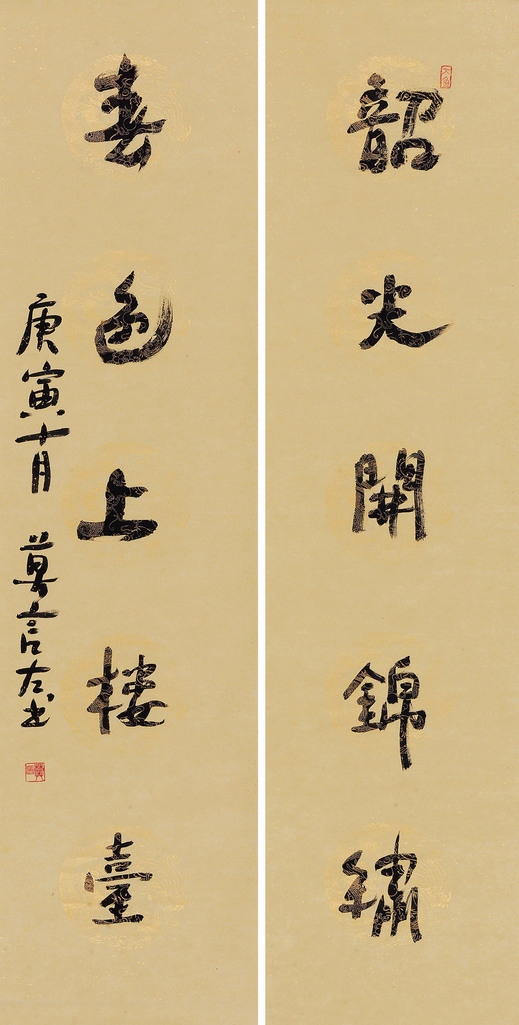 韶光開錦繡
春色上楼臺
庚寅十月 莫言左书